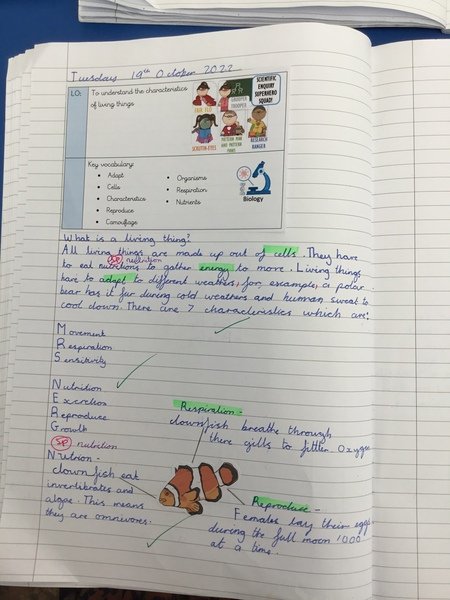 Tuesday 19th October 2022
LO: To understand the characteristics of living things
SCIENTIFIC ENQUIRY SUPERHERO SQUAD!
GROUPER TROOPER
SCRUTIN-EYES
PATTERN PEAK AND PATTERN PAWS
RESEARCH RANGER
Key vocabulary:
Adapt
Cells
Characteristics
Reproduce
Camouflage
Organisms
Respiration
Nutrients
Biology
What is a living thing?
All living things are made up out of cells. They have
Sp nutrition
to eat nutritions to gather energy to more. Living things
have to adapt to different weathers, for example, a polar
bear has it fur during cold weathers and human sweat to
cool down. There are 7 characteristics which are:
Movement
Respiration
Sensitivity
Nutrition
Excretion
Reproduce
Growth
Sp nutrition
Nutrion -
clown fish eat
invertibrates and
algae. This means
they are omnivores.
Respiration -
clownfish breathe through
there gills to filter Oxygen
Reproduce -
Females lay their eggs
during the full moon 1000
at a time.